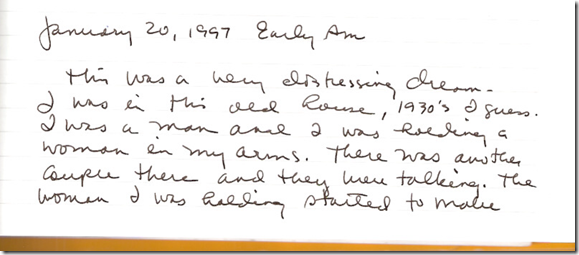 January 20, 1997 Early Am
This was a very distressing dream.
I was in this old house, 1930's I guess.
I was a man and I was holding a
woman in my arms. There was another
couple there and they were talking. The
woman I was holding started to make